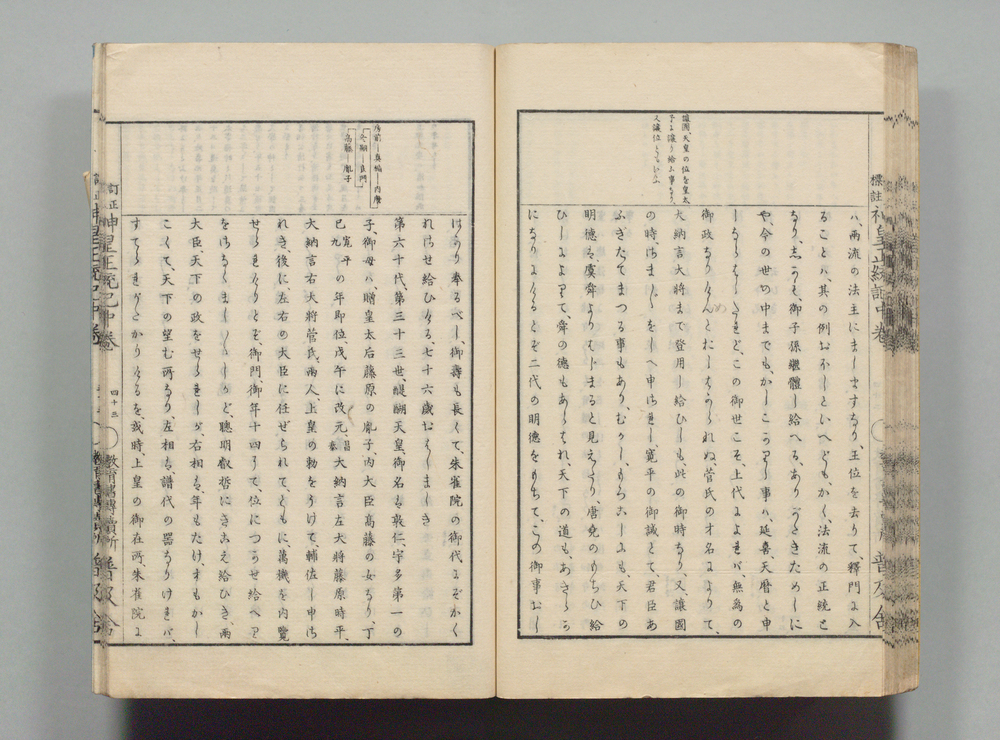 標註神皇正統記中卷
普及舍
讓國天皇の位を皇太
子に讓り給ふ事なり、
又讓位ともいふ
ハ、兩流の法主にましますなり、王位を去りて、釋門に入
ることハ、其の例おほしといへども、かく、法流の正統と
なり、しかも、御子孫繼體し給へる、ありがたきためしに
や、今の世の中までも、かしこかりし事ハ、延喜、天曆と申
しならはしたれど、この御世こそ、上代によれバ無爲の
御政なりけんとおしはかられぬ、菅氏の才名によりて、
大納言大將まで登用し給ひしも、此の御時なり、又、讓國
の時、さま〴〵をしへ申されし、寬平の御誡とて君臣あ
ふぎたてまつる事もあり、むかしもろこしにも、天下の
明德ハ虞舜よりはじまると見えたり、唐堯のもちひ給
ひしによりて、舜の德もあらはれ、天下の道も、あきらか
になりにけるとぞ二代の明德をもちて、この御事おし
はかり奉るべし、御壽も長くて、朱雀院の御代にぞかく
れさせ給ひける、七十六歲おはしましき
第六十代、第三十三世、醍醐天皇、御名ハ敦仁、宇多第一の
子、御母ハ、贈皇太后藤原の胤子、內大臣高藤の女なり、丁
巳寬平九の年卽位、戊午に改元、昌泰大納言左大將藤原時平、
大納言右大將菅氏、兩人、上皇の勅をうけて、輔佐し申さ
れき、後に、左右の大臣に任ぜられて、ともに萬機を內覽
せられけりとぞ、御門、御年十四にて、位につかせ給へり
をさなくましましゝかど、聰明叡哲にきこえ給ひき、兩
大臣、天下の政をせられしが、右相ハ、年もたけ、才もかし
こくて、天下の望む所なり、左相ハ、譜代の器なりければ、
すてられがたかりけるを、或時、上皇の御在所、朱雀院に
冬嗣─良門
高藤─胤子
訂正神皇正統記中卷
四十三
普及舍